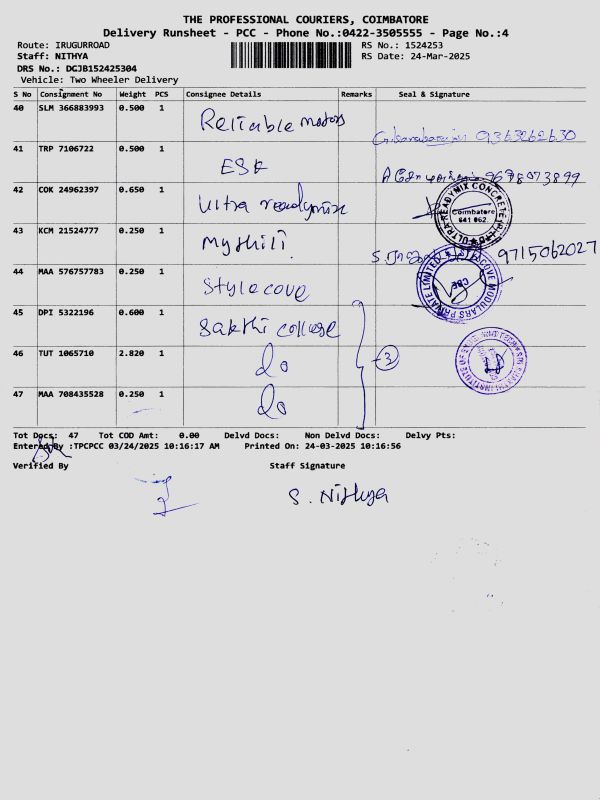 THE PROFESSIONAL COURIERS, COIMBATORE
Delivery Runsheet - PCC - Phone No.:0422-3505555 - Page No.:4
Route: IRUGURROAD RS No.: 1524253
Staff: NITHYA RS Date: 24-Mar-2025
DRS No.: DGJB152425304
Vehicle: Two Wheeler Delivery
S No Consignment No Weight PCS Consignee Details Remarks Seal & Signature
40 SLM 366883993 0.500 1 Reliable motors 9363262630
41 TRP 7106722 0.500 1 ESR 9698073899
42 COK 24962397 0.650 1 Ultra readymix ULTRA READYMIX CONCRETE Coimbatore 641 062
43 KCM 21524777 0.250 1 Mythili 9715062027
44 MAA 576757783 0.250 1 Stylecove MODULARS PRIVATE LIMITED CBE
45 DPI 5322196 0.600 1 Sakthi college
46 TUT 1065710 2.820 1 do 3
47 MAA 708435528 0.250 1 do
Tot Docs: 47 Tot COD Amt: 0.00 Delvd Docs: Non Delvd Docs: Delvy Pts:
Entered By :TPCPCC 03/24/2025 10:16:17 AM Printed On: 24-03-2025 10:16:56
Verified By Staff Signature
S. Nithya